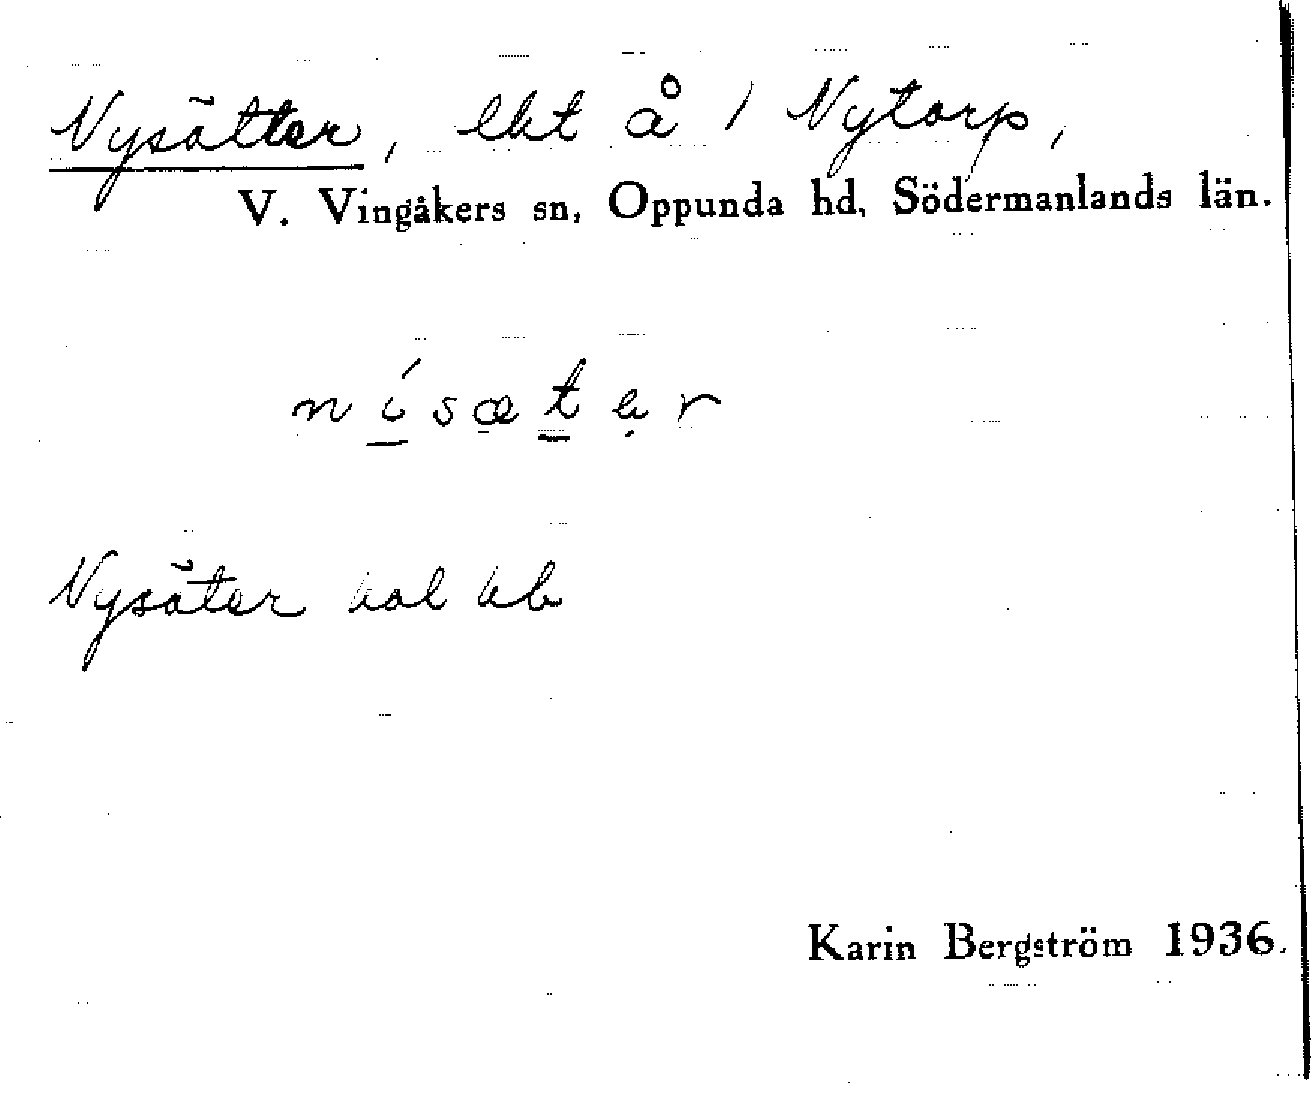 Nysätter, lht å / Nytorp,
V. Vingåkers sn, Oppunda hd, Södermanlands län.
nísæter
Nysäter kol kb
Karin Bergström 1936.